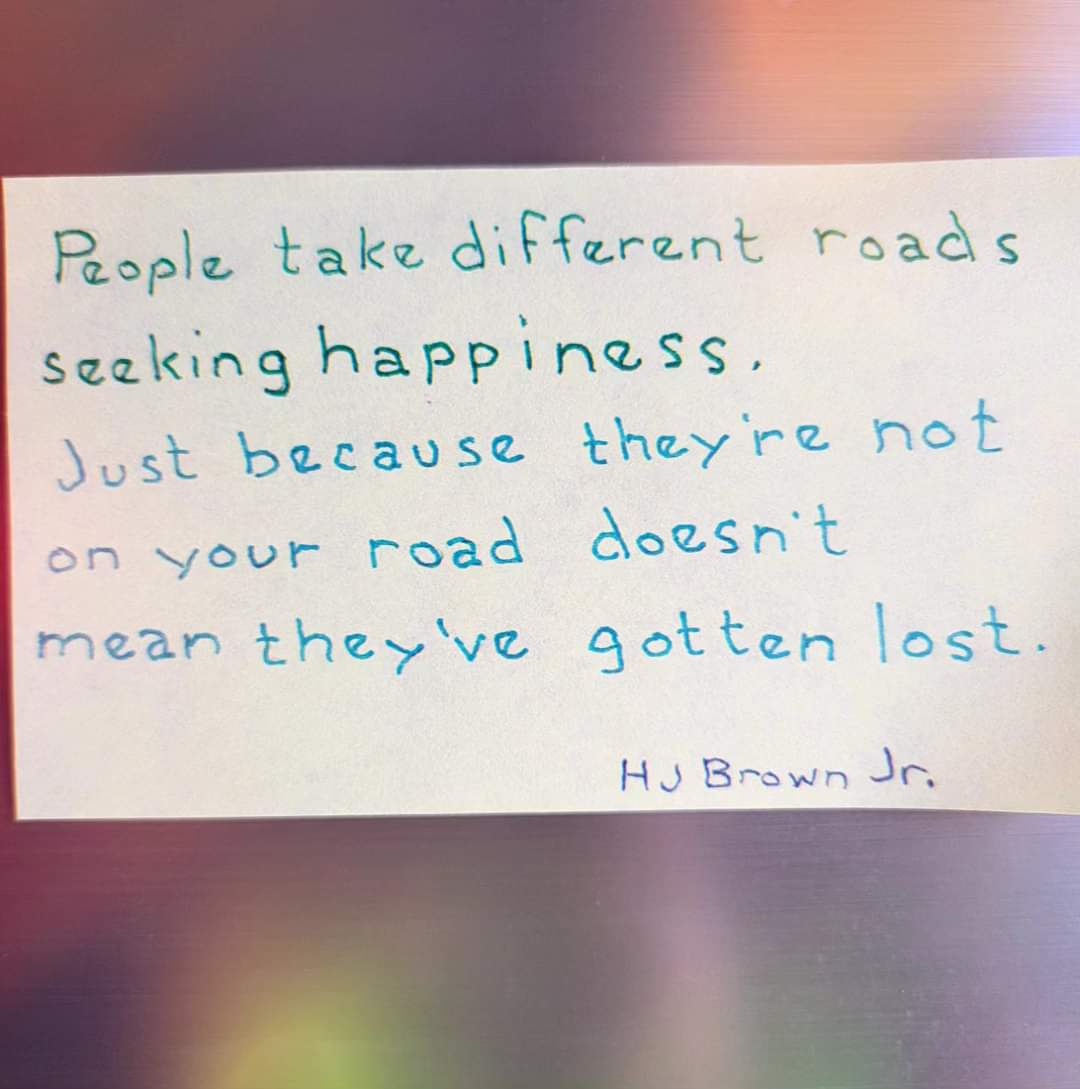 People take different roads
seeking happiness.
Just because they're not
on your road doesn't
mean they've gotten lost.
HJ Brown Jr.